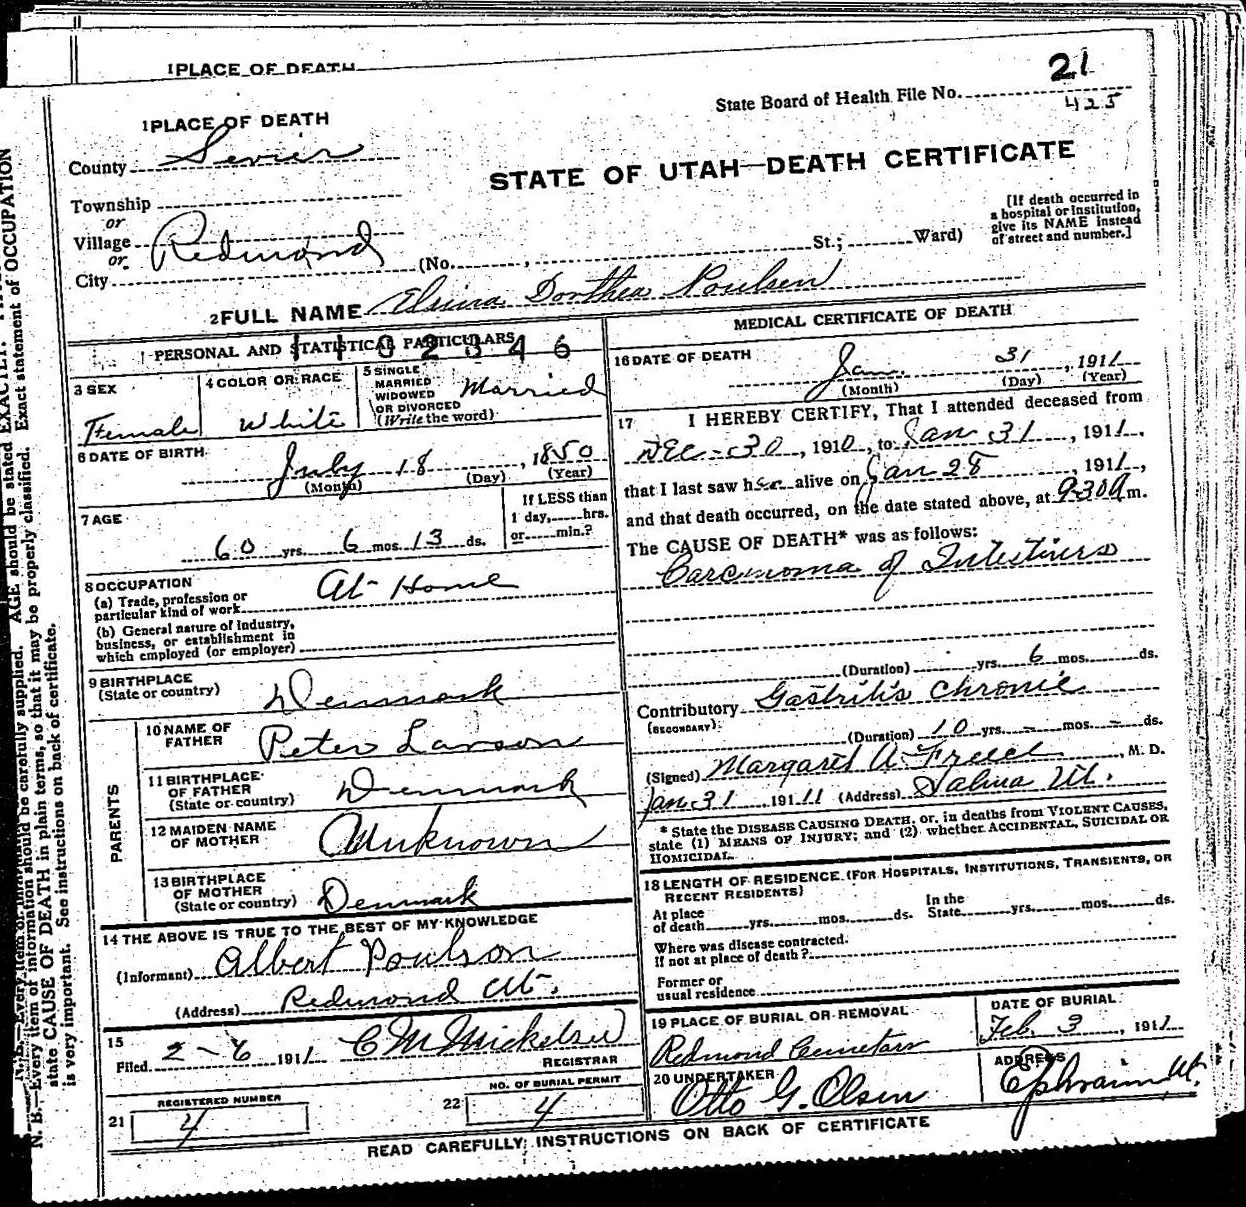 1 PLACE OF DEATH
21
State Board of Health File No. 425
1 PLACE OF DEATH
County Sevier
STATE OF UTAH—DEATH CERTIFICATE
Township
or
Village Redmond
or
City (No. St.; Ward)
[If death occurred in
a hospital or institution,
give its NAME instead
of street and number.]
2 FULL NAME Elsina Dorthea Poulsen
PERSONAL AND STATISTICAL PARTICULARS
1102346
3 SEX
Female
4 COLOR OR RACE
White
5 SINGLE
MARRIED
WIDOWED
OR DIVORCED
(Write the word)
Married
6 DATE OF BIRTH
July 18, 1850
(Month) (Day) (Year)
7 AGE
60 yrs. 6 mos. 13 ds.
If LESS than
1 day, hrs.
or min.?
8 OCCUPATION
(a) Trade, profession or
particular kind of work At Home
(b) General nature of industry,
business, or establishment in
which employed (or employer)
9 BIRTHPLACE
(State or country) Denmark
PARENTS
10 NAME OF
FATHER Peter Larson
11 BIRTHPLACE
OF FATHER
(State or country) Denmark
12 MAIDEN NAME
OF MOTHER Unknown
13 BIRTHPLACE
OF MOTHER
(State or country) Denmark
14 THE ABOVE IS TRUE TO THE BEST OF MY KNOWLEDGE
(Informant) Albert Poulson
(Address) Redmond Ut.
15
Filed 2-6 1911 C M Mickelsen
REGISTRAR
REGISTERED NUMBER
21 4
NO. OF BURIAL PERMIT
22 4
MEDICAL CERTIFICATE OF DEATH
16 DATE OF DEATH
Jan. 31, 1911
(Month) (Day) (Year)
17 I HEREBY CERTIFY, That I attended deceased from
Dec - 30, 1910, to Jan 31, 1911,
that I last saw her alive on Jan 28, 1911,
and that death occurred, on the date stated above, at 9-30 a m.
The CAUSE OF DEATH* was as follows:
Carcinoma of Intestines
(Duration) yrs. 6 mos. ds.
Contributory Gastritis Chronic
(SECONDARY)
(Duration) 10 yrs. – mos. – ds.
(Signed) Margaret A Freece, M. D.
Jan 31 1911 (Address) Salina Ut.
* State the DISEASE CAUSING DEATH, or, in deaths from VIOLENT CAUSES,
state (1) MEANS OF INJURY; and (2) whether ACCIDENTAL, SUICIDAL OR
HOMICIDAL.
18 LENGTH OF RESIDENCE (FOR HOSPITALS, INSTITUTIONS, TRANSIENTS, OR
RECENT RESIDENTS)
At place
of death yrs. mos. ds.
In the
State yrs. mos. ds.
Where was disease contracted.
If not at place of death?
Former or
usual residence
19 PLACE OF BURIAL OR REMOVAL
Redmond Cemetary
DATE OF BURIAL
Feb. 3, 1911
20 UNDERTAKER
Otto G. Olsen
ADDRESS
Ephraim Ut.
READ CAREFULLY INSTRUCTIONS ON BACK OF CERTIFICATE
N. B.—Every item of information should be carefully supplied. AGE should be stated EXACTLY.
state CAUSE OF DEATH in plain terms, so that it may be properly classified. Exact statement of OCCUPATION
is very important. See instructions on back of certificate.